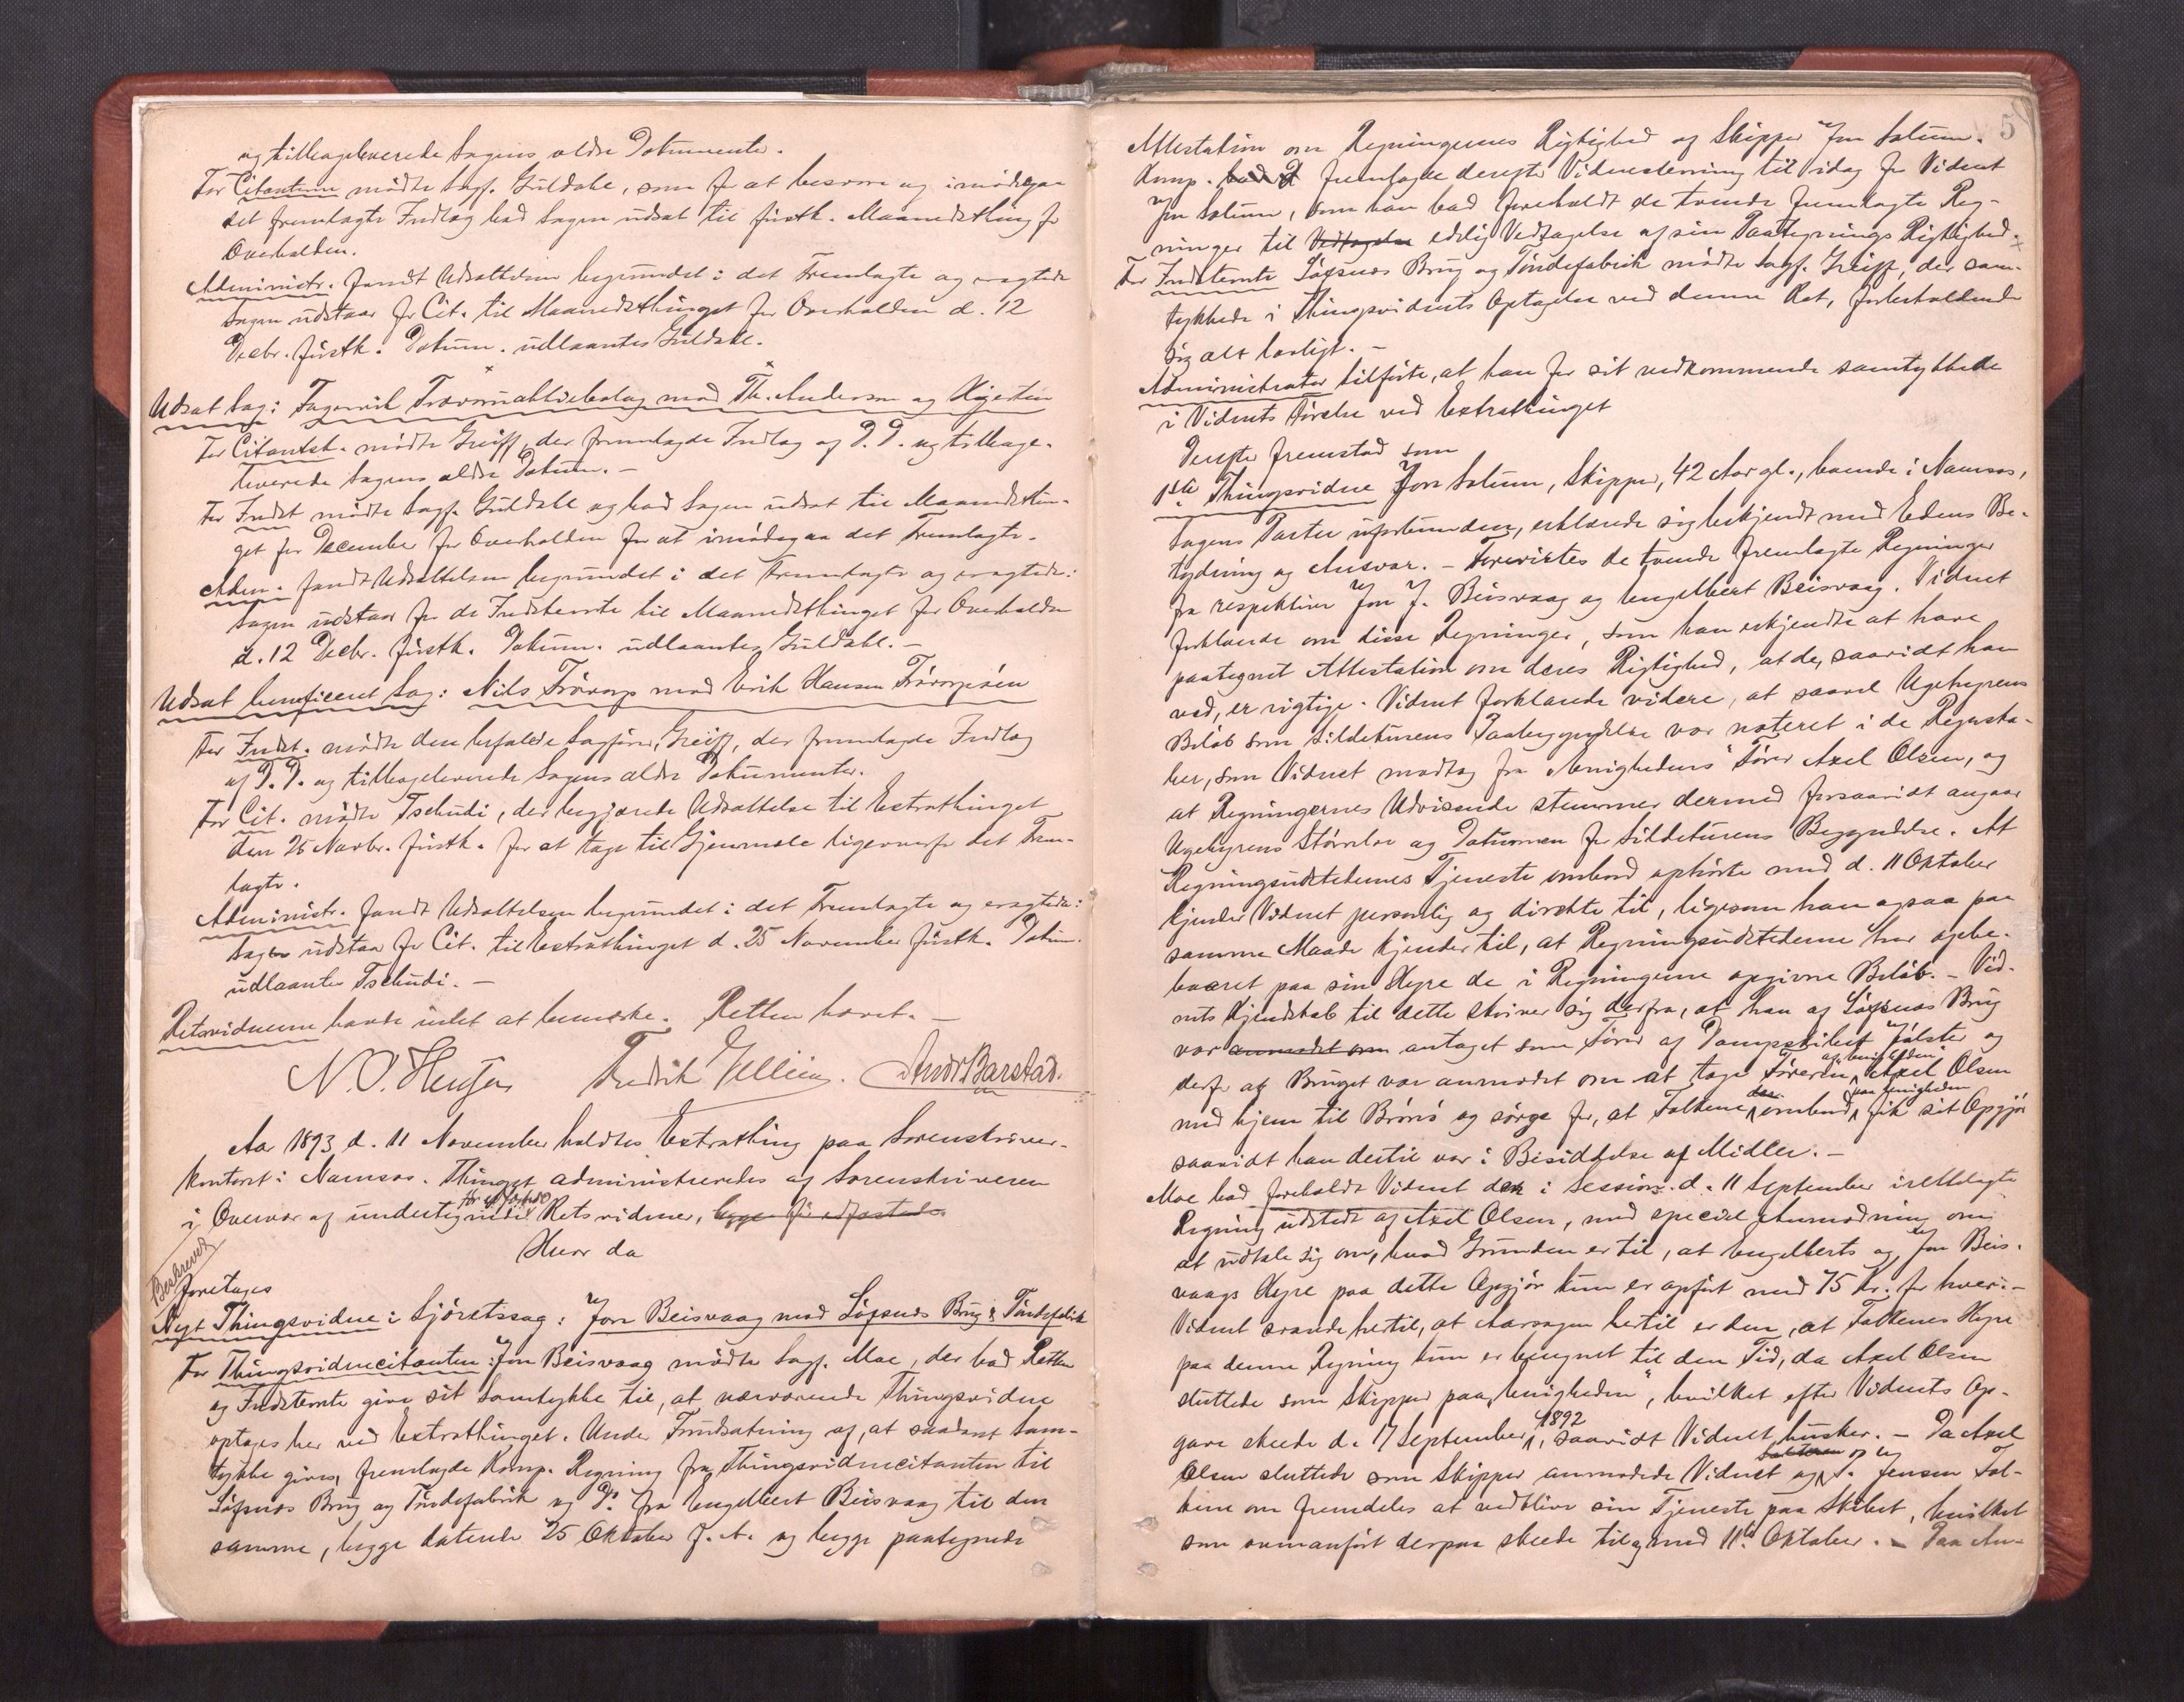 og tilbageleverede Sagens ældre Dokumenter.
For Citanterne mødte Sagf. Guldahl, som for at besvare og imødegaa
det fremlagte Indlæg bad Sagen udsat til førstk. Maanedsthing for
Overhalden.
Administr. fandt Udsættelsen begrundet i det Fremlagte og eragtede
Sagen udstaar for Cit. til Maanedsthinget for Overhalden d. 12
Decbr. førstk. Dokum. udlaantes Guldahl.
Udsat Sag: Fagervik Træsmaltiebolag mod Th. Anderson og Kjersten
For Citantsk. mødte Greiff, der fremlagde Indlæg af D. D. og tilbage-
leverede Sagens ældre Dokum. –
For Indst mødte Sagf. Guldahl og bad Sagen udsat til Maanedsthin-
get for December for Overhalden for at imødegaa det Fremlagte.
Adm. fandt Udsættelsen begrundet i det Fremlagte og eragtede:
Sagen udstaar for de Indstevnte til Maanedsthinget for Overhalden
d. 12 Decbr. førstk. Dokum. udlaantes Guldahl. –
Udsat beneficeret Sag: Nils Frøvorp mod Erik Hansen Frøvorpsøen
For Indst. mødte den befalede Sagfører, Greiff, der fremlagde Indlæg
af D. D. og tilbageleverede Sagens ældre Dokumenter.
For Cit. mødte Tschudi, der begjærede Udsættelse til Extrathinget
den 25 Novbr. førstk. for at tage til Gjenmæle ligeoverfor det Frem-
lagte.
Administr. fandt Udsættelsen begrundet i det Fremlagte og eragtede:
Sagen udstaar for Cit. til Extrathinget d. 25 November førstk. Dokum.
udlaantes Tschudi. –
Retsvidnerne havde intet at bemærke. Retten hævet. –
Fredrik Andr Barstad.
Aar 1893 d. 11 November holdtes Extrathing paa Sorenskriver-
kontoret i Namsos. Thinget administreredes af Sorenskriveren
i Overvær af undertegnede Retsvidner, begge før edfæstede
Hvor da
Beskrevet
foretoges
Nyt Thingsvidne i Sjøretssag: Jon Beisvaag mod Søfsnes Brug & Tøndefabrik
For Thingsvidnecitanten Jon Beisvaag mødte Sagf. Moe, der bad Retten
og Indstevnte give sit Samtykke til, at nærværende Thingsvidne
optages her ved Extrathinget. Under Forudsætning af, at saadant Sam-
tykke gives, fremlagde Komp. Regning fra Thingsvidnecitanten til
Søfsnes Brug og Tøndefabrik og Do fra Engelbert Beisvaag til den
samme, begge daterede 25 Oktober f. A. og begge paategnede
5
Attestation om Regningernes Rigtighed af Skipper Jon Solum.
Komp. bad D fremlagde derefter Vidnestevning til idag for Vidnet
Jon Solum, som han bad foreholdt de tvende fremlagte Reg-
ninger til Vedtagelse edelig Vedtagelse af sin Paategnings Rigtighed.
For Indstevnte Søfsnes Brug og Tøndefabrik mødte Sagf. Greiff, der sam-
tykkede i Thingsvidnets Optagelse ved denne Ret, forbeholdende
sig alt lovligt. –
Administrator tilførte, at han for sit vedkommende samtykkede
i Vidnets Førelse ved Extrathinget
Derefter fremstod som
1ste Thingsvidne Jon Solum, Skipper, 42 Aar gl., boende i Namsos,
Sagens Parter uforbunden, erklærede sig bekjendt med Edens Be-
tydning og Ansvar. – Forevistes de tvende fremlagte Regninger
fra respektive Jon J. Beisvaag og Engelbert Beisvaag. Vidnet
forklarede om disse Regninger, som han erkjendte at have
paategnet Attestation om deres Rigtighed, at de, saavidt han
ved, er rigtige. Vidnet forklarede videre, at saavel Ugehyrens
Beløb som Sildeturens Paabegyndelse var noteret i de Regnska-
ber, som Vidnet modtog fra „Enighedens" Fører Axel Olsen, og
at Regningernes Udvisende stemmer dermed forsaavidt angaar
Ugehyrens Størrelse og Datumen for Sildeturens Begyndelse. At
Regningsudstedernes Tjeneste ombord ophørte med d. 11 Oktober
kjender Vidnet personlig og direkte til, ligesom han ogsaa paa
samme Maade kjender til, at Regningsudstederne har oppe-
baaret paa sin Hyre de i Regningerne opgivne Beløb. – Vid-
nets Kjendskab til dette skriver sig derfra, at han af Søfsnes Brug
var anmodet om antaget som Fører af Dampskibet „Jølster" og
derfor af Bruget var anmodet om at tage Føreren af „Enigheden" Axel Olsen
med hjem til Brønø og sørge for, at Folkene der ombord paa Enigheden fik sit Opgjør
saavidt han dertil var i Besiddelse af Midler. –
Moe bad foreholdt Vidnet den i Session d. 11 September irettelagte
Regning udstedt af Axel Olsen, med speciel Anmodning om
at udtale sig om, hvad Grunden er til, at Engelberts og Jon Beis-
vaags Hyre paa dette Opgjør kun er opført med 75 Kr. for hver. –
Vidnet svarede hertil, at Aarsagen hertil er den, at Folkenes Hyre
paa denne Regning kun er beregnet til den Tid, da Axel Olsen
sluttede som Skipper paa „Enigheden", hvilket efter Vidnets Op-
gave skeede d. 17 September 1892, saavidt Vidnet husker. – Da Axel
Olsen sluttede som Skipper anmodede Vidnet og Jensen Fol-
kene om fremdeles at vedblive sin Tjeneste paa Skibet, hvilket
som ovenanført derpaa skeede til og med 11te Oktober. – Paa An-